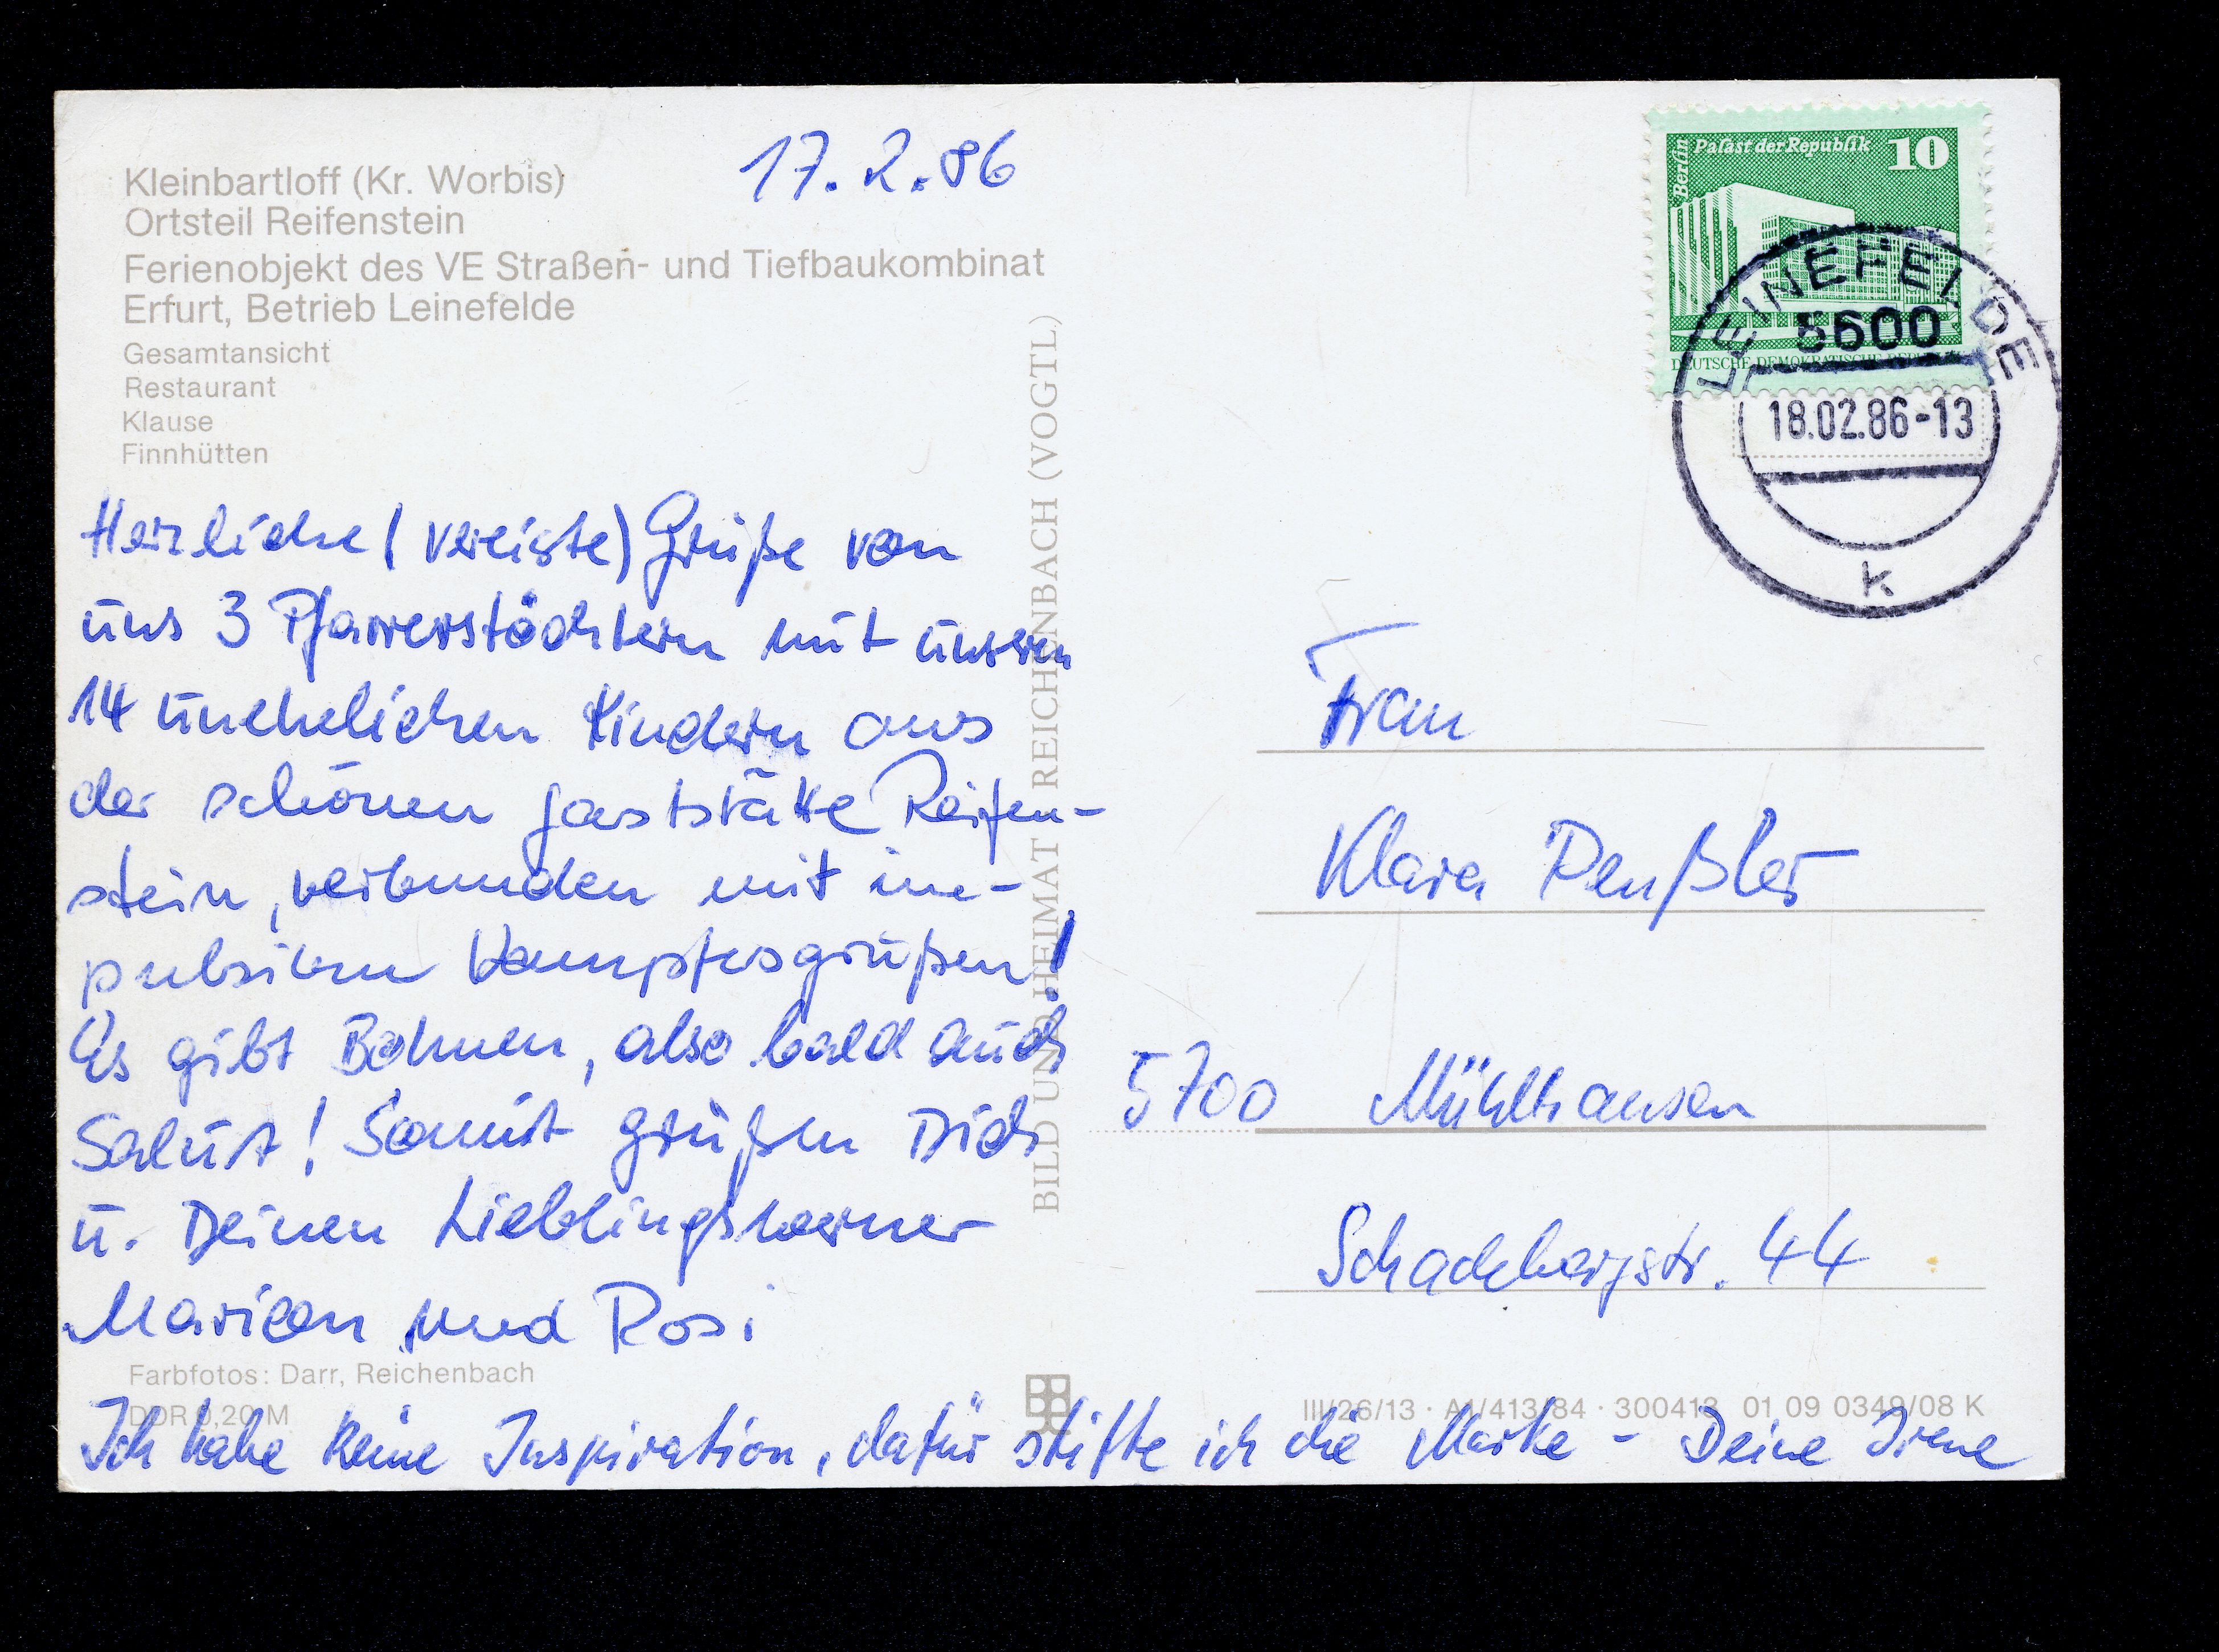 17.2.86
Kleinbartloff (Kr. Worbis)
Ortsteil Reifenstein
Ferienobjekt des VE Straßen- und Tiefbaukombinat
Erfurt, Betrieb Leinefelde
Gesamtansicht
Restaurant
Klause
Finnhütten
Herzliche (vereiste) Grüße von
uns 3 Pfarrerstöchtern mit unsern
14 unehelichen Kindern aus
der schönen Gaststätte Reifen-
stein, verbunden mit
Kampfesgrüßen!
Es gibt Bohnen, also bald auch
Salut! Somit grüßen Dich
u. Deinen
und Rosi
Farbfotos: Darr, Reichenbach
DDR 0,20 M
Ich habe keine Inspiration, dafür stifte ich die Marke - Deine Irene
BILD UND HEIMAT REICHENBACH (VOGTL)
Berlin
Palast der Republik 10
DEUTSCHE DEMOKRATISCHE REPUBLIK
LEINEFELDE
5600
18.02.86-13
k
Frau
Klara
5700 Mühlhausen
Schadebergstr. 44
III/26/13 · A1/413/84 · 300413 01 09 0349/08 K